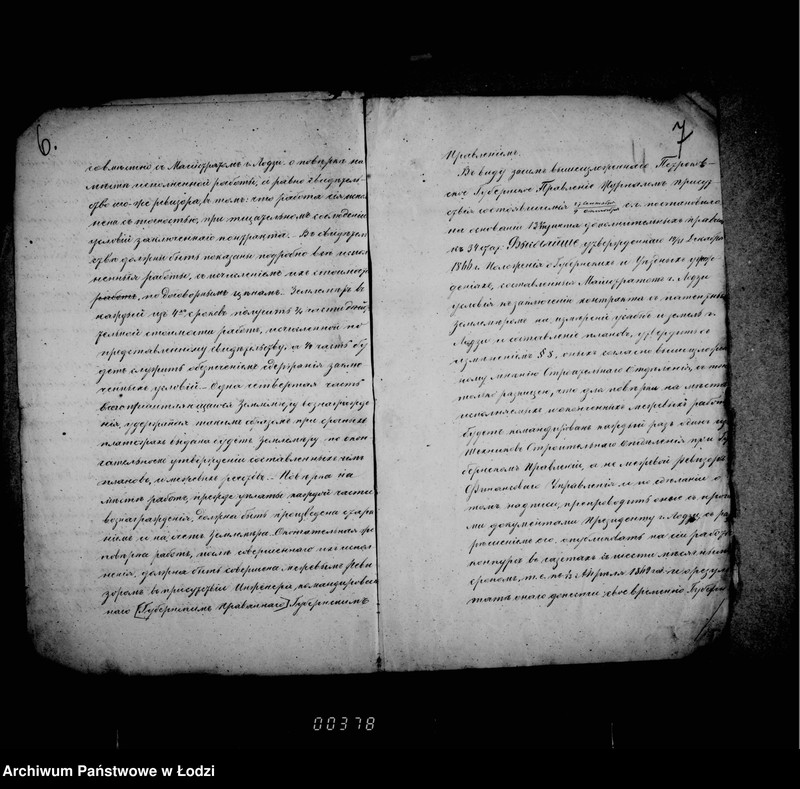 6.
совместно съ Магистратомъ г. Лодзи о поверкѣ на
мѣстѣ исполненной работы, а равно свидѣтель-
ство его-же ревизора, въ томъ: что работа сія исполнена
съ точностью, при тщательномъ соблюденіи
условій заключеннаго контракта. Въ свидѣтель-
ствѣ должны быть показаны подробно всѣ испол-
ненныя работы, съ исчисленіемъ ихъ стоимости
работъ, по договорнымъ цѣнамъ. Землемѣръ въ
каждый изъ 4хъ сроковъ получитъ ¾ части дѣйстви-
тельной стоимости работъ, исчисленной по
представленному свидѣтельству, а ¼ часть бу-
детъ служить обезпеченіемъ сдержанія заклю-
ченныхъ условій. Одна четвертая часть
всего причитающагося Землемѣру вознагражде-
нія, удержанная такимъ образомъ при срочныхъ
платежахъ выдана будетъ Землемѣру по окон-
чательномъ утвержденіи составленныхъ имъ
плановъ, и межевыхъ реестровъ. Повѣрка на
мѣстѣ работъ, прежде уплаты каждой части
вознагражденія, должна быть произведена стара-
ніемъ и на счетъ Землемѣра. Окончательная же
повѣрка работъ, послѣ совершеннаго ихъ испол-
ненія, должна быть совершена межевымъ Реви-
зоромъ въ присутствіи Инженера, командирован-
наго [Губернскимъ Правленіемъ] Губернскимъ
7
Правленіемъ.
Въ виду всего вышеизложеннаго Петроков-
ское Губернское Правленіе Журналомъ присут-
ствія состоявшимся октября с.г. постановило:
на основаніи 13 пункта дополнительныхъ правилъ
къ 34 стат. Высочайше утвержденнаго Декабря
1866 г. Положенія о Губернскихъ и Уѣздныхъ учреж-
деніяхъ, составленныя Магистратомъ г. Лодзи
условія на заключеніе контракта съ патентов.
землемѣромъ на измѣреніе усадьбъ и земель г.
Лодзи и составленіе плановъ, утвердить съ
измѣненіемъ § 8, оныхъ согласно вышеизложен-
ному мнѣнію Строительнаго Отдѣленія, съ тою
только разницею, что для повѣрки на мѣстѣ
исполненныхъ и оконченныхъ межевыхъ работъ
будетъ командированъ каждый разъ одинъ изъ
Техниковъ Строительнаго Отдѣленія при Гу-
бернскомъ Правленіи, а не межевой Ревизоръ
Финансоваго Управленія и по сдѣланіи о
томъ надписи, препроводить оные съ прочи-
ми документами Президенту г. Лодзи съ раз-
рѣшеніемъ ему, опубликовать на сіи работы
конкурсъ въ газетахъ съ шести мѣсячнымъ
срокомъ, т. е. по Апрѣля года и о резуль-
татѣ онаго донести своевременно Губерн-
00378
Archiwum Państwowe w Łodzi